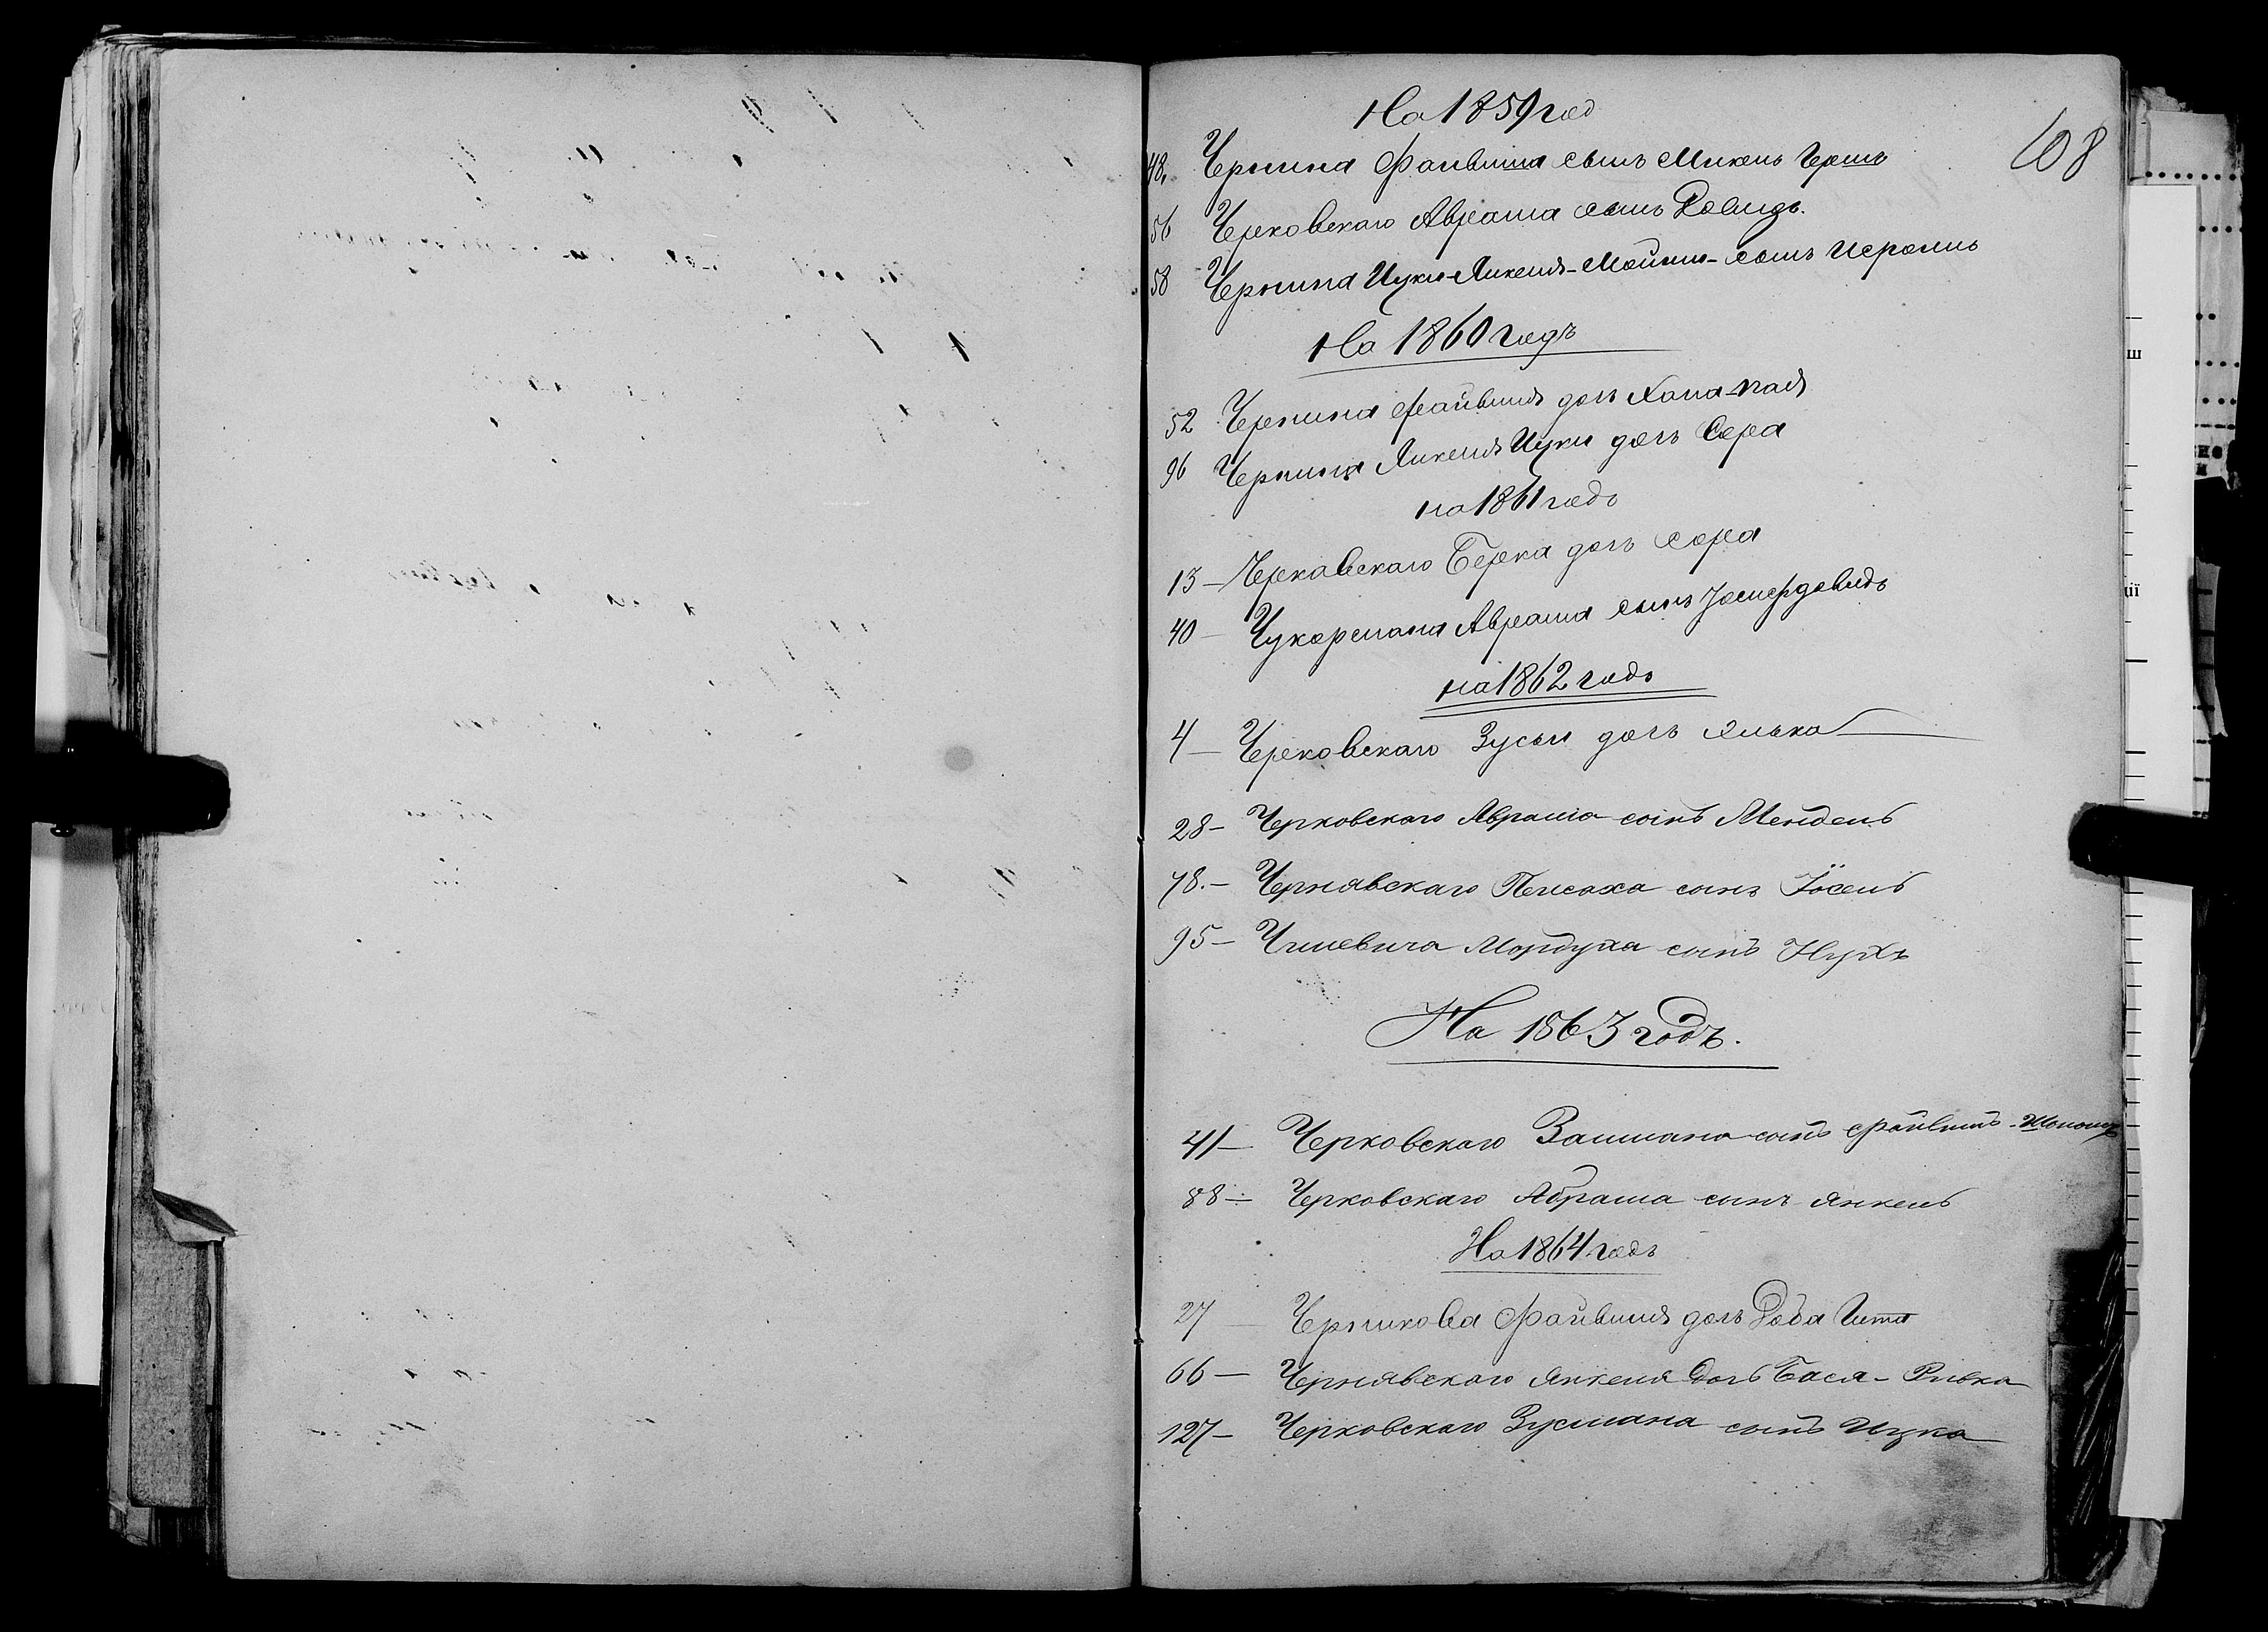 На 1859 год
108
48, Чернина Файвиша сынъ Микель Гершъ
56 Черковскаго Абрама сынъ Довидъ.
58 Чернина Ицки-Янкеля-Мойши- сынъ Исроиль
На 1860 годъ
52 Чернина Файвиша дочь Хана-
96 Чернина Янкеля Ицки дочь Сора
на 1861 годъ
13 - Черковскаго Берка дочь Сора
40 - Чукермана Абрама сынъ
на 1862 годъ
4 - Черковскаго Зуси дочь Элька
28 - Черковскаго Абрама сынъ Мендель
78. - Чернявскаго Пейсаха сынъ Іосель
95 - Мордуха сынъ Нухъ
На 1863 годъ.
41 - Черковскаго Залмана сынъ Файвишъ -
88 - Черковскаго Абрама сынъ Янкель
На 1864 годъ
27 - Черникова Файвиша дочь Доба Гита
66 - Чернявскаго Янкеля дочь Бася - Ривка
127 - Черковскаго Зусмана сынъ Ицка